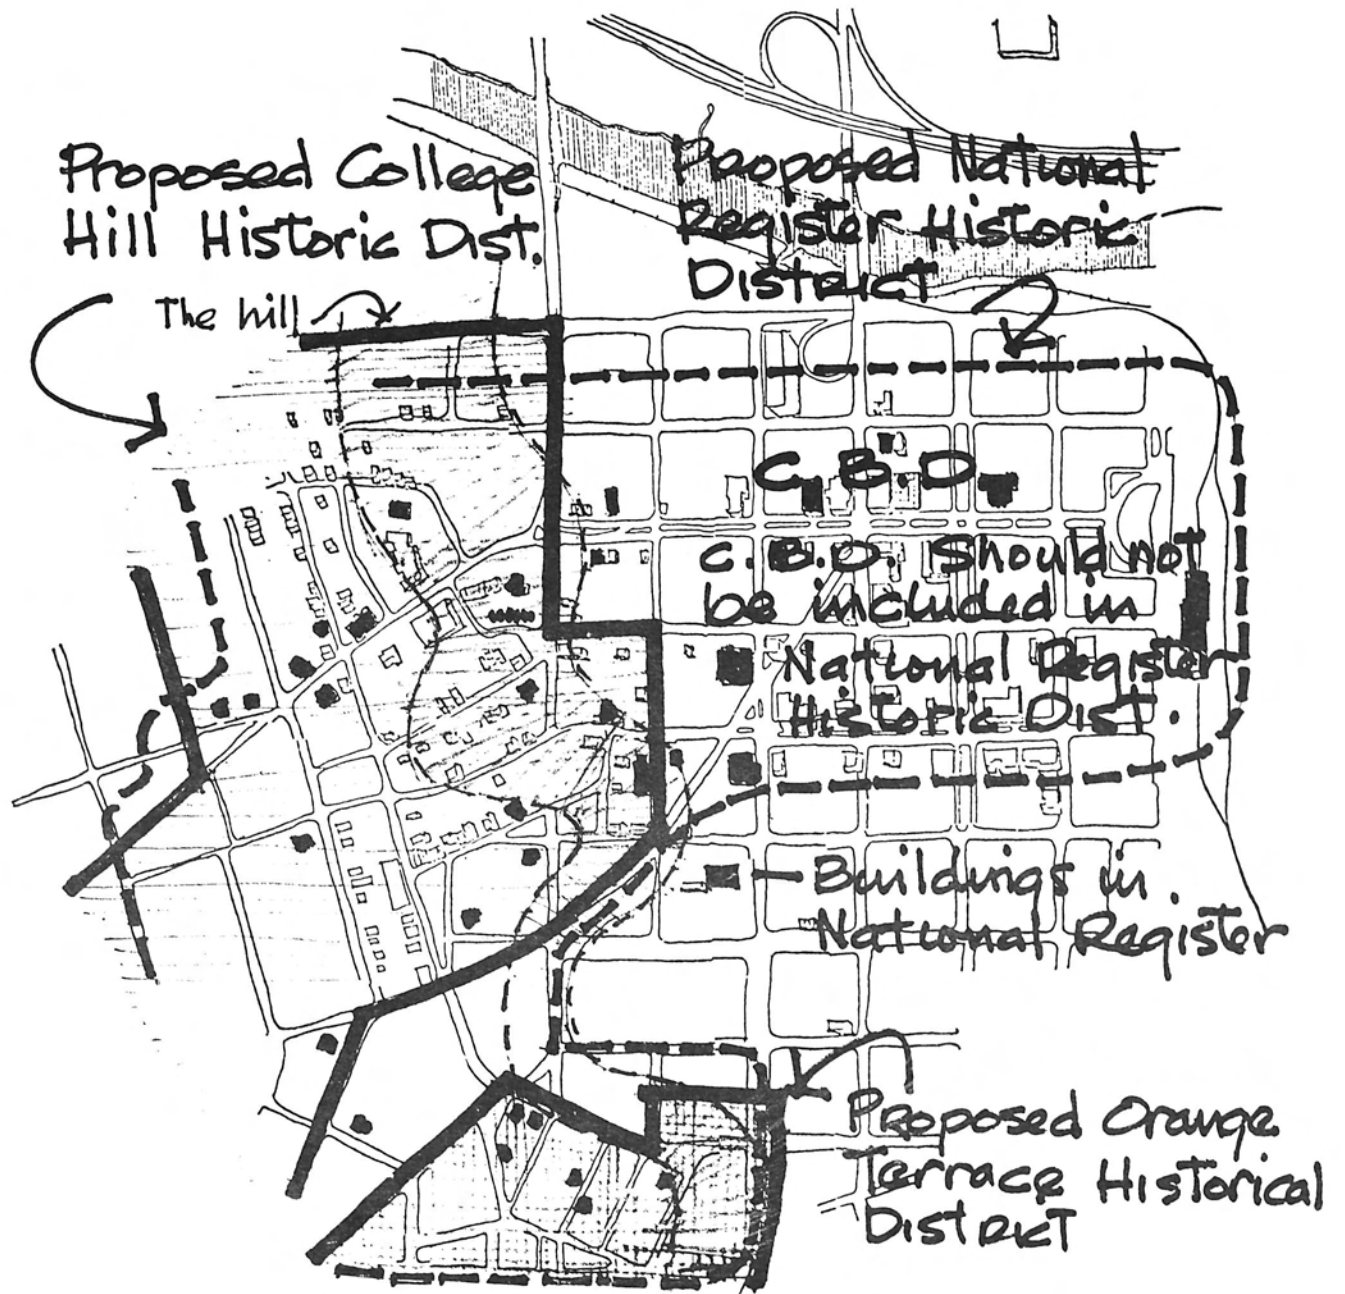 Proposed College
Hill Historic Dist.
The hill
Proposed National
Register Historic
District
C.B.D.
C.B.D. Should not
be included in
National Register
Historic Dist.
Buildings in
National Register
Proposed Orange
Terrace Historical
District